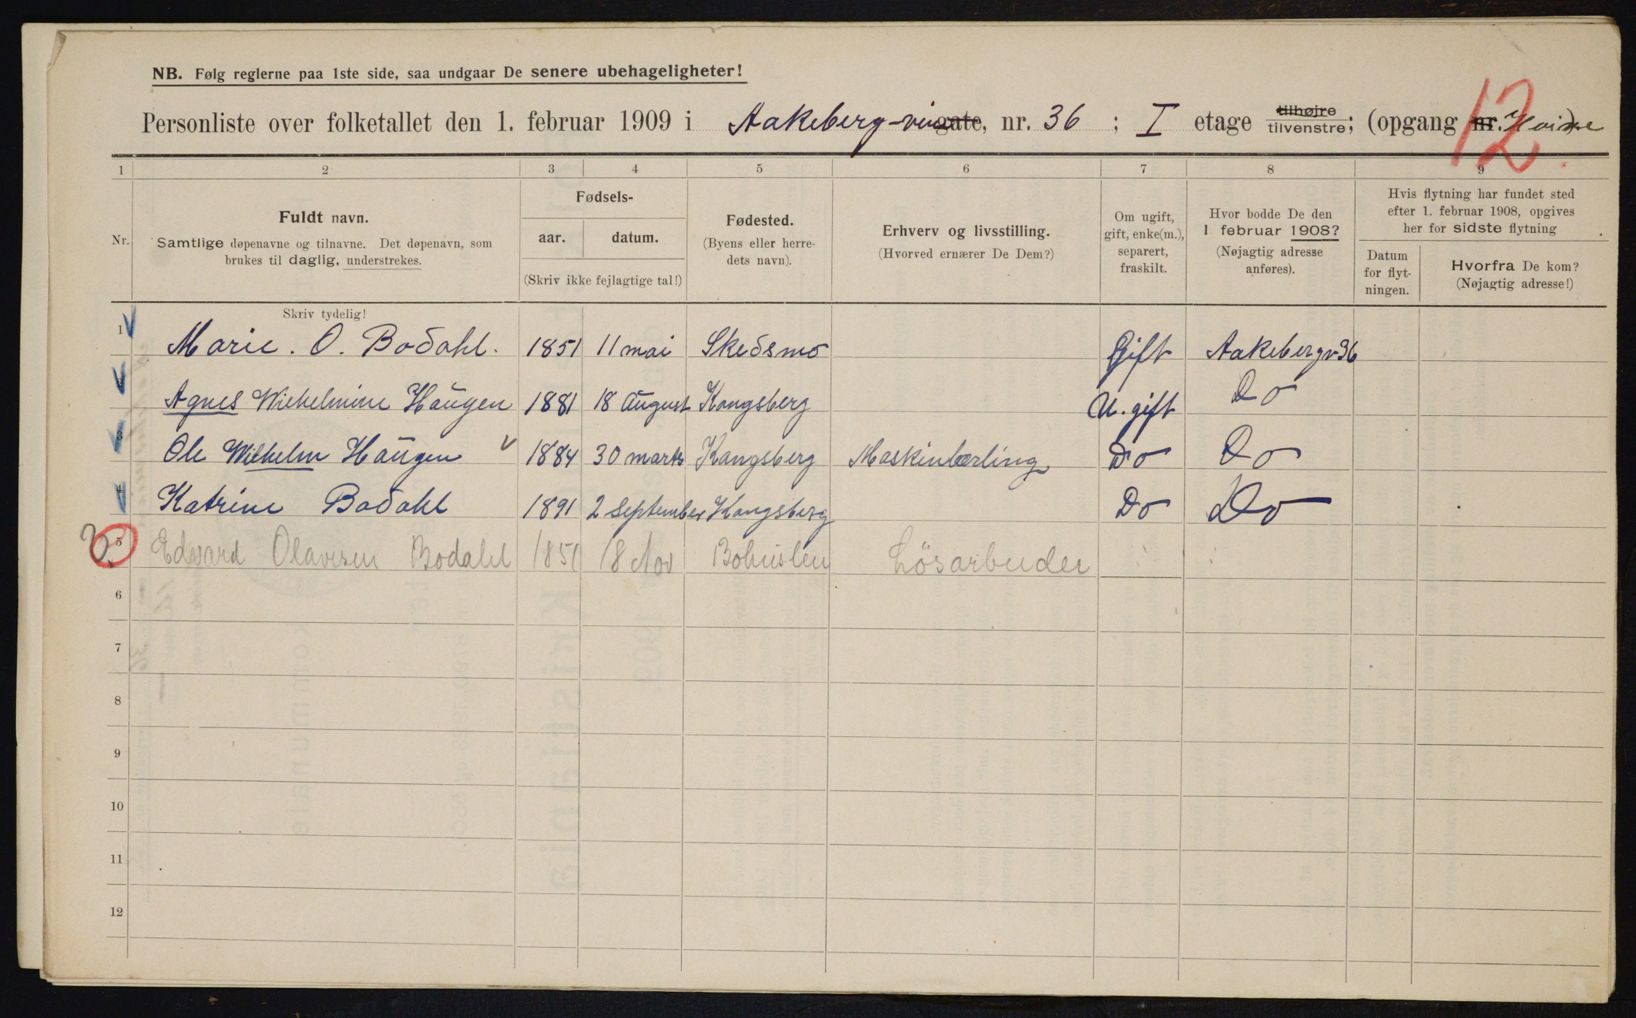 NB. Følg reglerne paa 1ste side, saa undgaar De senere ubehageligheter!
Personliste over folketallet den 1. februar 1909 i Aakeberg-veigate, nr. 36 ; I etage tilhøjre tilvenstre; (opgang nr.
12.
1 2 3 4 5 6 7 8 9
Nr.
Fuldt navn.
Samtlige døpenavne og tilnavne. Det døpenavn, som
brukes til daglig, understrekes.
Fødsels-
aar. datum.
(Skriv ikke fejlagtige tal!)
Fødested.
(Byens eller herre-
dets navn).
Erhverv og livsstilling.
(Hvorved ernærer De Dem?)
Om ugift,
gift, enke(m.),
separert,
fraskilt.
Hvor bodde De den
1 februar 1908?
(Nøjagtig adresse
anføres).
Hvis flytning har fundet sted
efter 1. februar 1908, opgives
her for sidste flytning
Datum
for flyt-
ningen.
Hvorfra De kom?
(Nøjagtig adresse!)
Skriv tydelig!
1 Marie. O. Bodahl. 1851 11 mai Skedsmo Gift Aakebergv 36
Agnes Wilhelmine Haugen 1881 18 august Kongsberg U. gift Do
3 Ole Wilhelm Haugen 1884 30 marts Kongsberg Maskinlærling Do Do
4 Katrine Bodahl 1891 2 September Kongsberg Do Do
5 Edvard Olavesen Bodahl 1851 18 Nov Bohuslen Løsarbeider
6
7
8
9
10
11
12